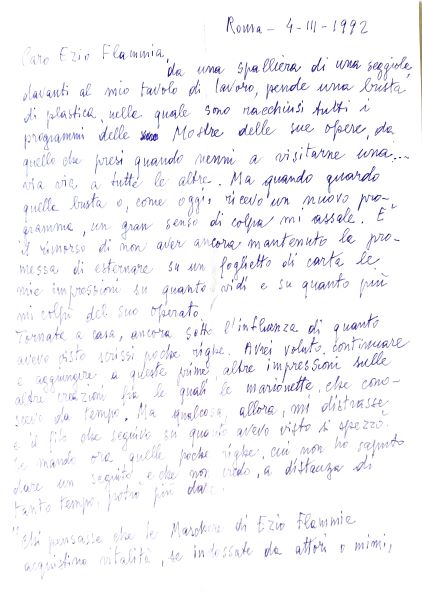 Roma - 4-III-1992
Caro Ezio Flammia,
da una spalliera di una seggiola,
davanti al mio tavolo di lavoro, pende una busta
di plastica, nella quale sono racchiusi tutti i
programmi delle Mostre delle sue opere, da
quello che presi quando venni a visitarne una...
via via a tutte le altre. Ma quando guardo
quella busta o, come oggi, ricevo un nuovo pro-
gramma, un gran senso di colpa mi assale. E'
il rimorso di non aver ancora mantenuto la pro-
messa di esternare su un foglietto di carta le
mie impressioni su quanto vidi e su quanto più
mi colpì del suo operato.
Tornata a casa, ancora sotto l'influenza di quanto
avevo visto scrissi poche righe. Avrei voluto continuare
e aggiungere a queste prime altre impressioni sulle
altre creazioni fra le quali le marionette, che cono-
scevo da tempo. Ma qualcosa, allora, mi distrasse
e il filo che seguivo su quanto avevo visto si spezzò.
Le mando ora quelle poche righe, cui non ho saputo
dare un seguito, e che non credo, a distanza di
tanto tempo, potrò più dare.
"Chi pensasse che le Maschere di Ezio Flammia
acquistino vitalità, se indossate da attori o mimi,